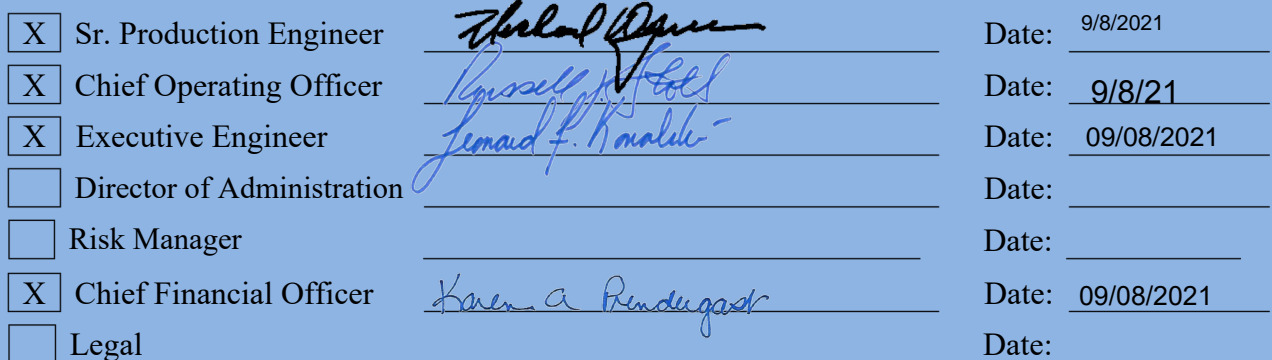 X Sr. Production Engineer Date: 9/8/2021
X Chief Operating Officer Russell Date: 9/8/21
X Executive Engineer Leonard F. Date: 09/08/2021
Director of Administration Date:
Risk Manager Date:
X Chief Financial Officer Karen A Prendergast Date: 09/08/2021
Legal Date: